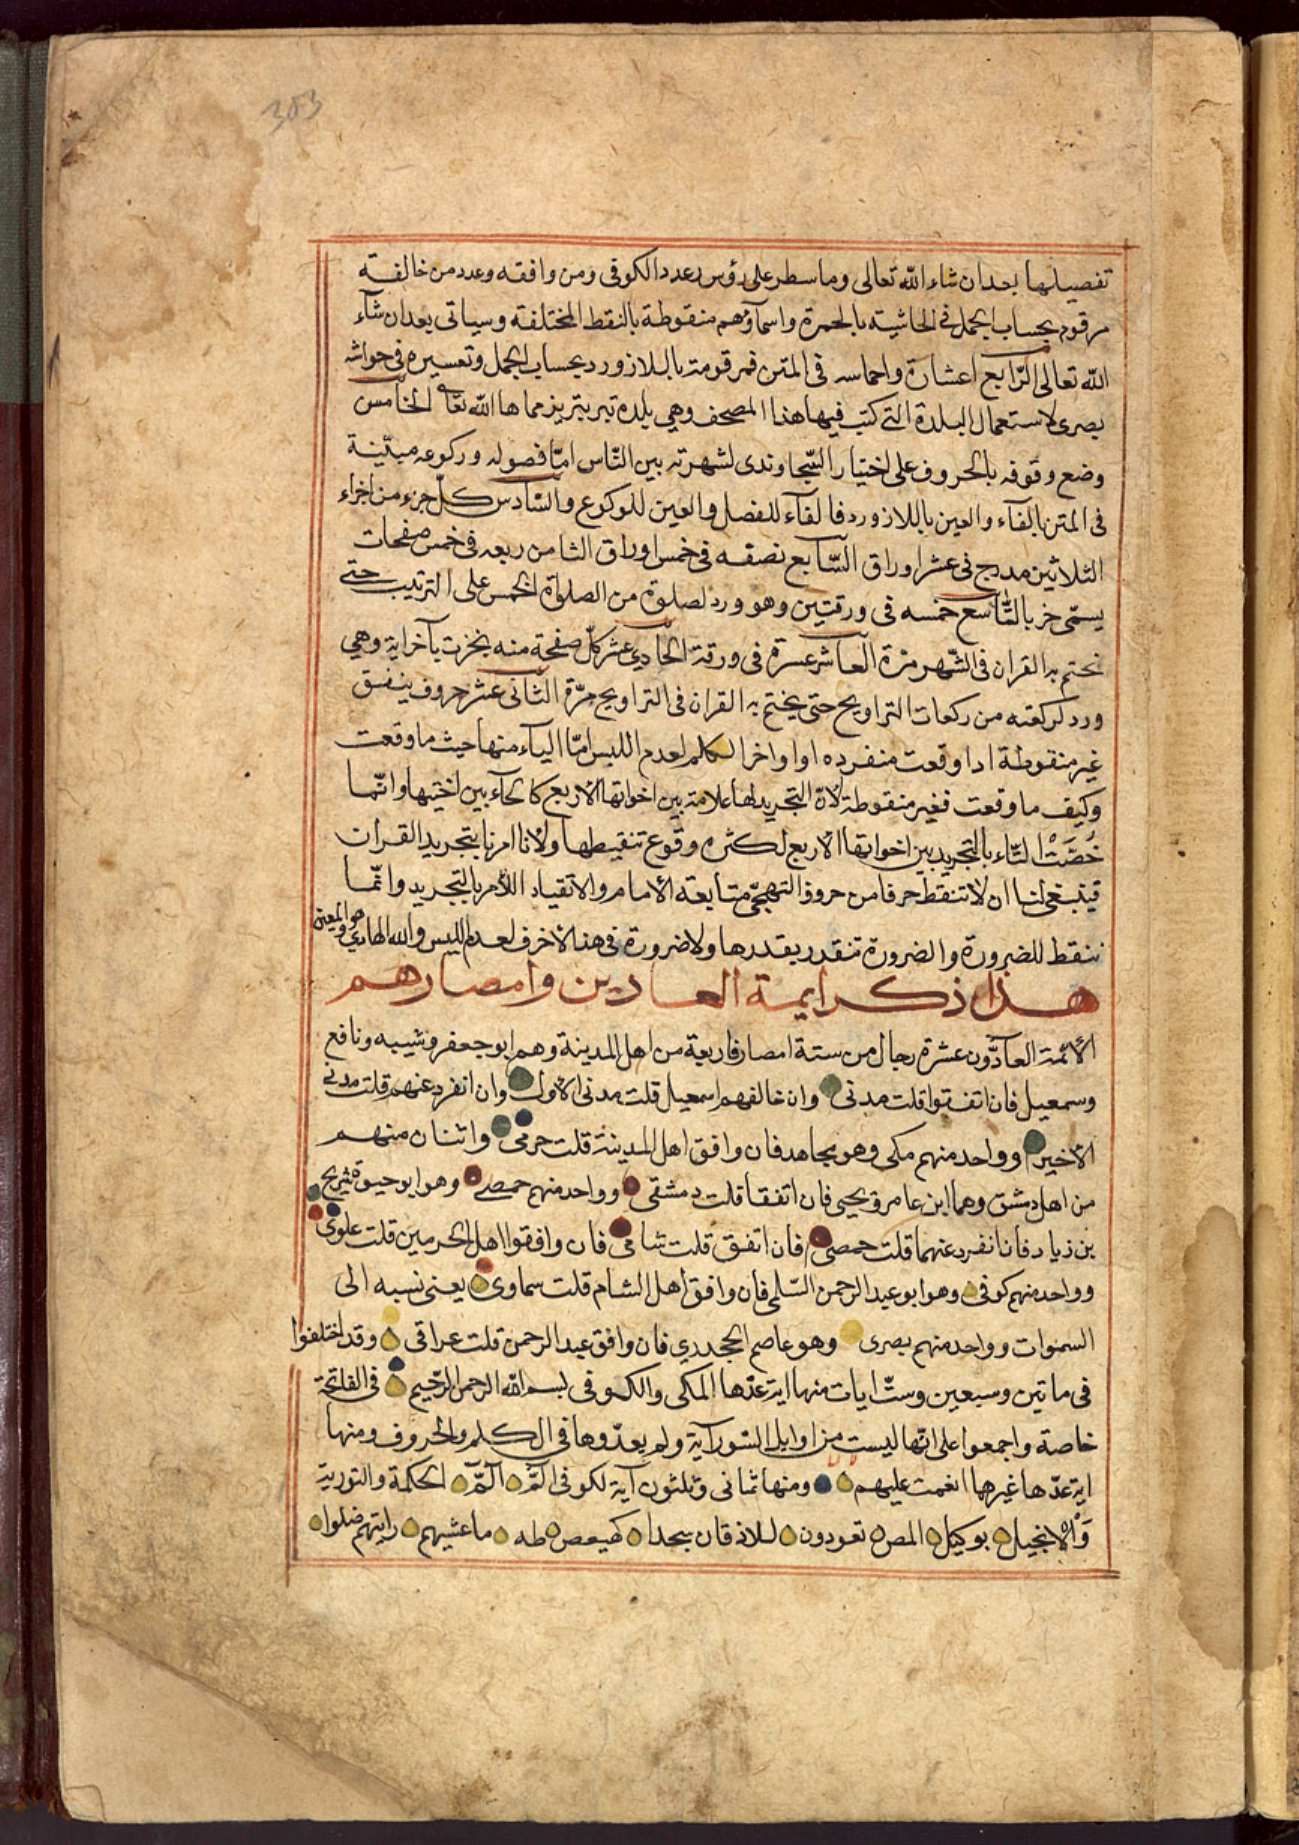 303
تفصيلها بعد ان شاء الله تعالى وما سطر على رؤس بعدد الكوفى ومن وافقه وعدد من خالفته
مرقوم بحساب الجمل فى الحاشيته بالحمرة واسمآؤهم منقوطة بالنقط المختلفة وسياتى بعد ان شآء
الله تعالى الرّابع اعشارة واخماسه فى المتن فمرقومة باللازورد بحساب الجمل وتعسيره فى حواشه
بصرى لاستعمال البلدة التى كتب فيها هذا المصحف وهى بلده تبريز حماها الله تعا الخامس
وضع وقوفه بالحروف على اختيار السّجاوندى لشهرته بين النّاس امّا فصوله وركوعه مبيّنة
فى المتن بالفآء والعين باللازورد فالفآء للفصل والعين للركوع والسّادس كلّ جزء من اجزاء
الثلاثين مدرج فى عشر اوراق السّابع نصفه فى خمس اوراق الثامن ربعه فى خمس صفحات
يسمّى حزبا التّاسع خمسه فى ورقتين وهو ورد لصلوة من الصلواة الخمس على الترتيب حتى
نختم به القران فى الشّهر مرّة العاشر عسرة فى ورقة الحادى عشر كلّ صفحة منه بآخر اية وهى
ورد لركعته من ركعات التراويح حتى يختم به القران فى التراويح مرّة الثّانى عشر حروف ينفق
غير منقوطة اذا وقعت منفرده او اواخر الكلم لعدم اللبس امّا الياء منها حيث ما وقعت
وكيف ما وقعت فغير منقوطة لانّ التجريد لها علامة بين اخواتها الاربع كالحآء بين اختيها وانّما
خُصّتْ التّاء بالتجريد بين اخواتها الاربع لكثره وقوع تنقيطها ولانا امرنا بتجريد القران
فينبغى لنا ان لا تنقط حرفا من حروف التهجّى متابعة الامام والانقياد اللامر بالتجريد وانّما
ننقط للضرورة والضرورة تتقدر بقدرها ولا ضرورة فى هذه الاحرف لعدم اللبس والله الهادى وهو المعين
هذا ذكر ايمة العادين وامصارهم
الائمّة العادّون عشرة رجال من ستة امصار فاربعة من اهل المدينة وهم ابو جعفر وشيبه ونافع
وسمعيل فان اتفقوا قلت مدنى وان خالفهم اسمعيل قلت مدنى الاول وان انفرد عنهم قلت مدنى
الاخير وواحد منهم مكى وهو مجاهد فان وافق اهل المدينة قلت حرمى واثنان منهم
من اهل دمشق وهما ابن عامر ويحيى فان اتفقا قلت دمشقى وواحد منهم حمصى وهو ابو حيوة شريح
بن زياد فانانفرد عنهما قلت حمصى فان اتفق قلت شامى فان وافقوا اهل الحرمين قلت علوى
وواحد منهم كوفى وهو ابو عبد الرحمن السّلمى فان وافق اهل الشام قلت سماوى يعنى نسبه الى
السموات وواحد منهم بصرى وهو عاصم الجحدرى فان وافق عبد الرحمن قلت عراقى وقد اختلفوا
فى ماتين وسبعين وستّ ايات منها اية عدّها المكى والكوفى بسم الله الرحمن الرّحيم فى الفاتحة
خاصة واجمعوا على انّها ليست من اوايل السّور آية ولم يعدّوها فى الكلم والحروف ومنها
اية عدّها غيرهما انعمت عليهم ومنها ثمانى وثلثون آية لكوفى الٓمّ الٓمّ الحكمة والتورية
وَالْانجيل بوكيل المص تعودون للاذقان سجدا كهيعص طه ما غشيهم رايتهم ضلوا